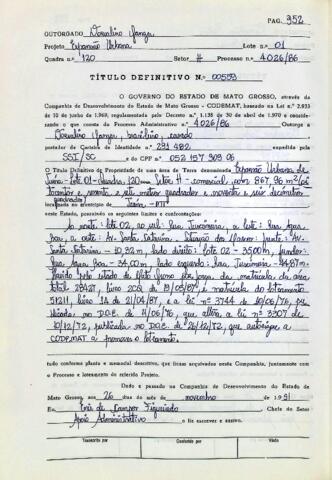 PAG. 352
OUTORGADO Doralino Manger
Projeto Expansão Urbana Lote n.º 01
Quadra n.º 120 Setor H Processo n.º 4026/86
TÍTULO DEFINITIVO N.º 00553
O GOVERNO DO ESTADO DE MATO GROSSO, através da
Companhia de Desenvolvimento do Estado de Mato Grosso - CODEMAT, baseado na Lei n.º 2.933
de 10 de junho de 1.969, regulamentada pelo Decreto n.º 1.138 de 30 de abril de 1.970 e considerando
o que consta do Processo Administrativo n.º 4026/86 Outorga a
brasileiro, casado
portador da Carteira de Identidade n.º 291 482 expedida pela
SSI/SC e do CPF n.º 052 157 309 06
O Título Definitivo de Propriedade de uma área de Terra denominada Expansão Urbana de
- lote 01 - Quadra 120 - Setor H - comercial, com 867,96 m² (oi
tocentos e sessenta e sete metros quadrados e noventa e seis decímetros
quadrados)
localizada no município de - MT
neste Estado, possuindo os seguintes limites e confrontações:
Ao norte: lote 02, ao sul: Rua, a leste: Rua
a oeste: Av. Santa Catarina. frente: Av.
Santa Catarina - lado direito: lote 02 - 35,00 m, fundos:
lado esquerdo: Rua
pelo estado de Mato Grosso por força da matrícula da área
total 28427, livro e matrícula do loteamento
51211, livro de 21/04/87, e a lei nº 3744 de 10/06/76, pu
blicada no D.O.E. de 11/06/76, que altera a lei nº 3307 de
10/12/72, publicada no D.O.E. de 26/12/72, que autoriza a
CODEMAT a promover o loteamento.
tudo conforme planta e memorial descritivo, que ficam arquivados nesta Companhia, juntamente com
o Processo e loteamento do referido Projeto.
Dado e passado na Companhia de Desenvolvimento do Estado de
Mato Grosso, aos 26 dias do mês de novembro de 1991
Eu, Enir de Campos Figueiredo Chefe do Setor
Apoio Administrativo o fiz escrever e assino.
Transcrito por Conferido por Visto